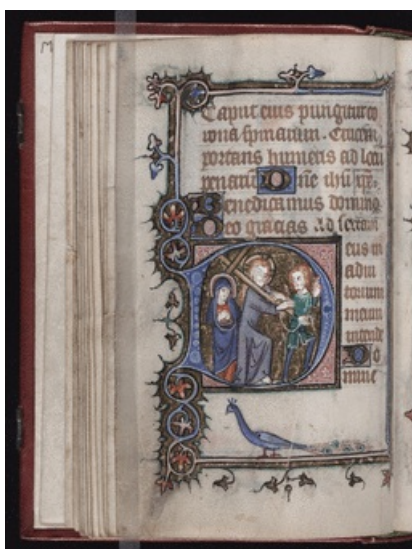 M
Caput eius pungitur co
rona spinarum. Crucem
portans humeris ad locū
penarū Dñe ihū xp̄e.
Benedicamus domino
Deo gracias Ad sextam
eus in
adiu
torium
meum
intende
Do
mine